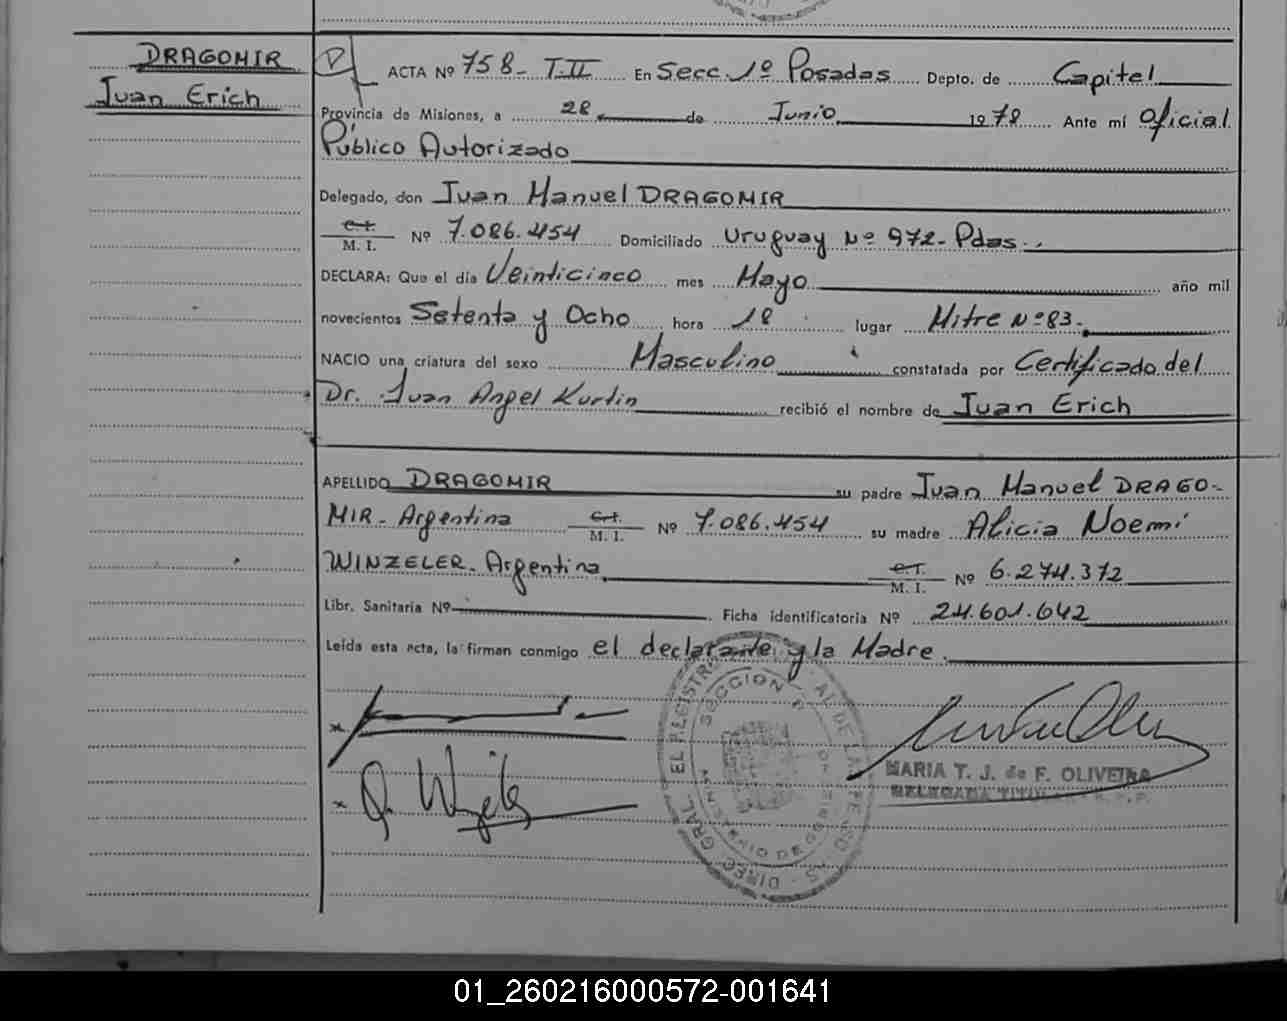 DRAGOMIR
Juan Erich
ACTA Nº 758- T.II En Secc. 1º Posadas Depto. de Capital
Provincia de Misiones, a 28 de Junio 1978 Ante mí Oficial
Público Autorizado
Delegado, don Juan Manuel DRAGOMIR
C.I.
M. I. Nº 7.086.454 Domiciliado Uruguay Nº 972- Pdas.
DECLARA: Que el día Veinticinco mes Mayo año mil
novecientos Setenta y Ocho hora 18 lugar Mitre Nº 83.
NACIO una criatura del sexo Masculino constatada por Certificado del
Dr. Juan Angel Kurtin recibió el nombre de Juan Erich
APELLIDO DRAGOMIR su padre Juan Manuel DRAGO-
MIR- Argentina C.I. M. I. Nº 7.086.454 su madre Alicia Noemí
WINZELER- Argentina C.I. M. I. Nº 6.274.372
Libr. Sanitaria Nº Ficha identificatoria Nº 24.601.642
Leída esta acta, la firman conmigo el declarante y la Madre.
SECCION
MARIA T. J. de F. OLIVEIRA
DELEGADA TITULAR
01_260216000572-001641